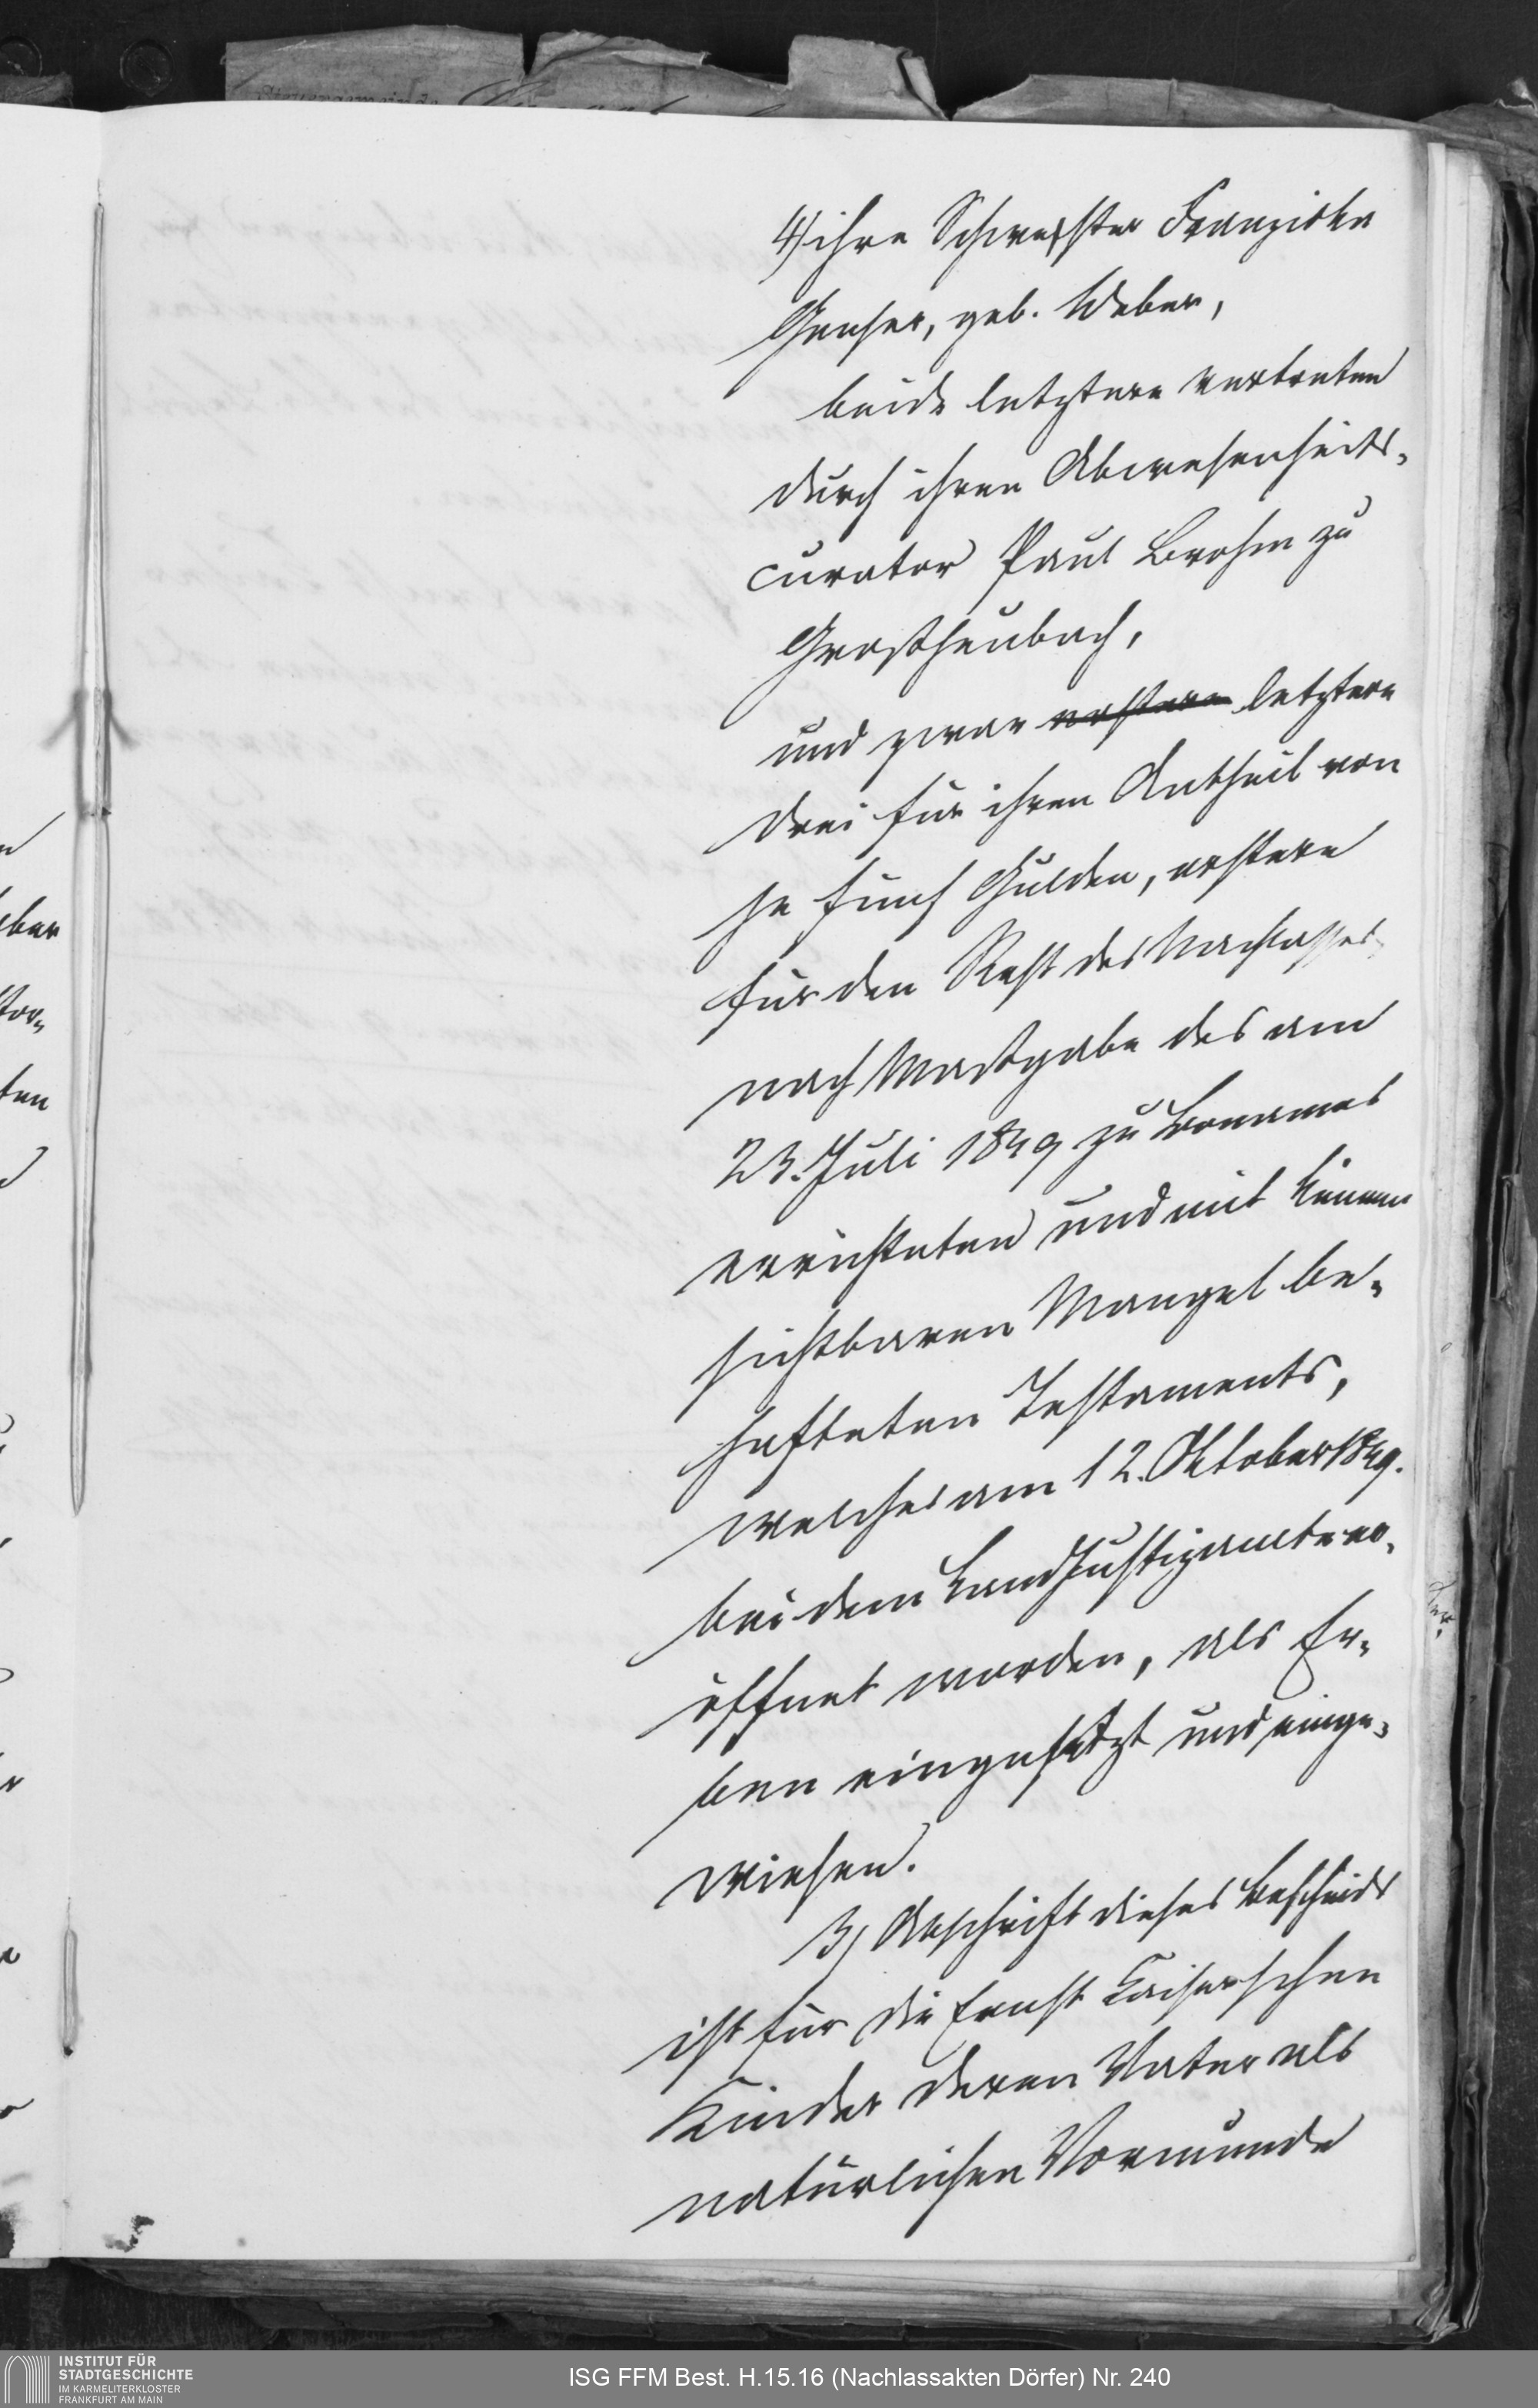 4) ihre Schwester Franziska
Genser, geb. Weber,
beide letztere vertreten
durch ihren Abwesenheits-
curator Paul Brohm zu
Großheubach,
und zwar erstere letztere
drei für ihren Antheil von
je fünf Gulden, erstere
für den Rest des Nachlasses
nach Maßgabe des am
23. Juli 1849 zu Bonames
errichteten und mit keinem
sichtbaren Mangel be-
hafteten Testaments,
welches am 12. Oktober 1849.
bei dem Landjustizamte er-
öffnet worden, als Er-
ben eingesetzt und einge-
wiesen.
3) Abschrift dieses Bescheids
ist für die Ernst Kaiserschen
Kinder deren Vater als
natürlichen Vormunde
INSTITUT FÜR
STADTGESCHICHTE
IM KARMELITERKLOSTER
FRANKFURT AM MAIN
ISG FFM Best. H.15.16 (Nachlassakten Dörfer) Nr. 240